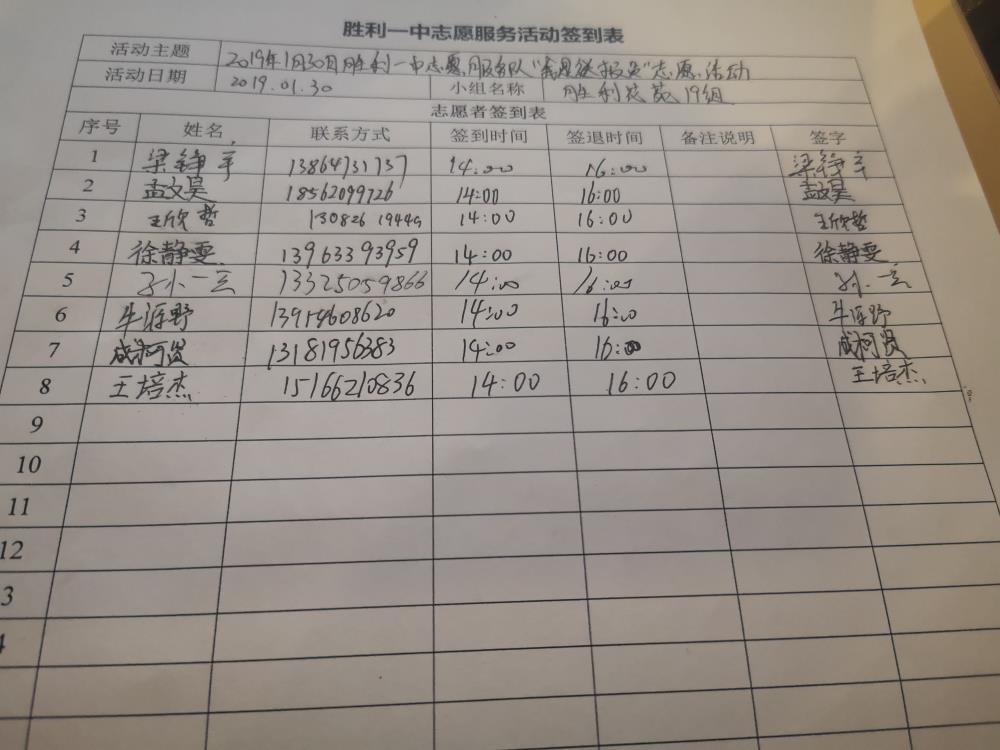 胜利一中志愿服务活动签到表
活动主题 2019年1月30日胜利一中志愿服务队" "志愿活动
活动日期 2019.01.30 小组名称 胜利花苑19组
志愿者签到表
序号 姓名 联系方式 签到时间 签退时间 备注说明 签字
1 梁铮 13864731737 14:00 16:00 梁铮
2 孟文昊 18562099726 14:00 16:00 孟文昊
3 王欣哲 130826 19449 14:00 16:00 王欣哲
4 徐静雯 13963393959 14:00 16:00 徐静雯
5 孙一言 13325059866 14:00 16:00 孙一言
6 牛 野 14:00 16:00 牛 野
7 成柯贤 13181956383 14:00 16:00 成柯贤
8 王培杰 15166210836 14:00 16:00 王培杰
9
10
11
12
3